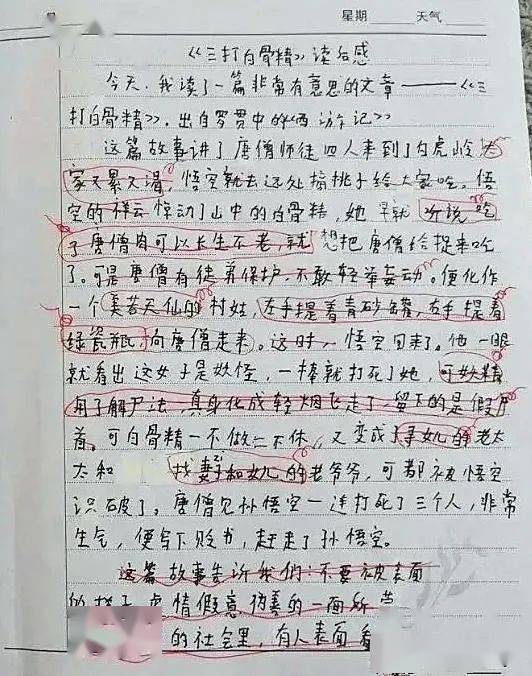 星期 天气
《三打白骨精》读后感
今天，我读了一篇非常有意思的文章——《三
打白骨精》，出自罗贯中的《西游记》
这篇故事讲了唐僧师徒四人来到了白虎岭，大
家又累又渴，悟空就去远处摘桃子给大家吃。悟
空的祥云惊动了山中的白骨精，她早就听说吃
了唐僧肉可以长生不老，就想把唐僧给捉来吃
了。可是唐僧有徒弟保护，不敢轻举妄动。便化作
一个美若天仙的村姑，左手提着青砂罐，右手提着
绿瓷瓶，向唐僧走来。这时，悟空回来了。他一眼
就看出这女子是妖怪，一棒就打死了她，可妖精
用了解尸法，真身化成轻烟飞走了，留下的是假尸
首。可白骨精一不做二不休，又变成寻女儿的老太
太和找妻子和女儿的老爷爷，可都被悟空
识破了。唐僧见孙悟空一连打死了三个人，非常
生气，便写下贬书，赶走了孙悟空。
这篇故事告诉我们：不要被表面
的样子虚情假意伪善的一面所
的社会里，有人表面看